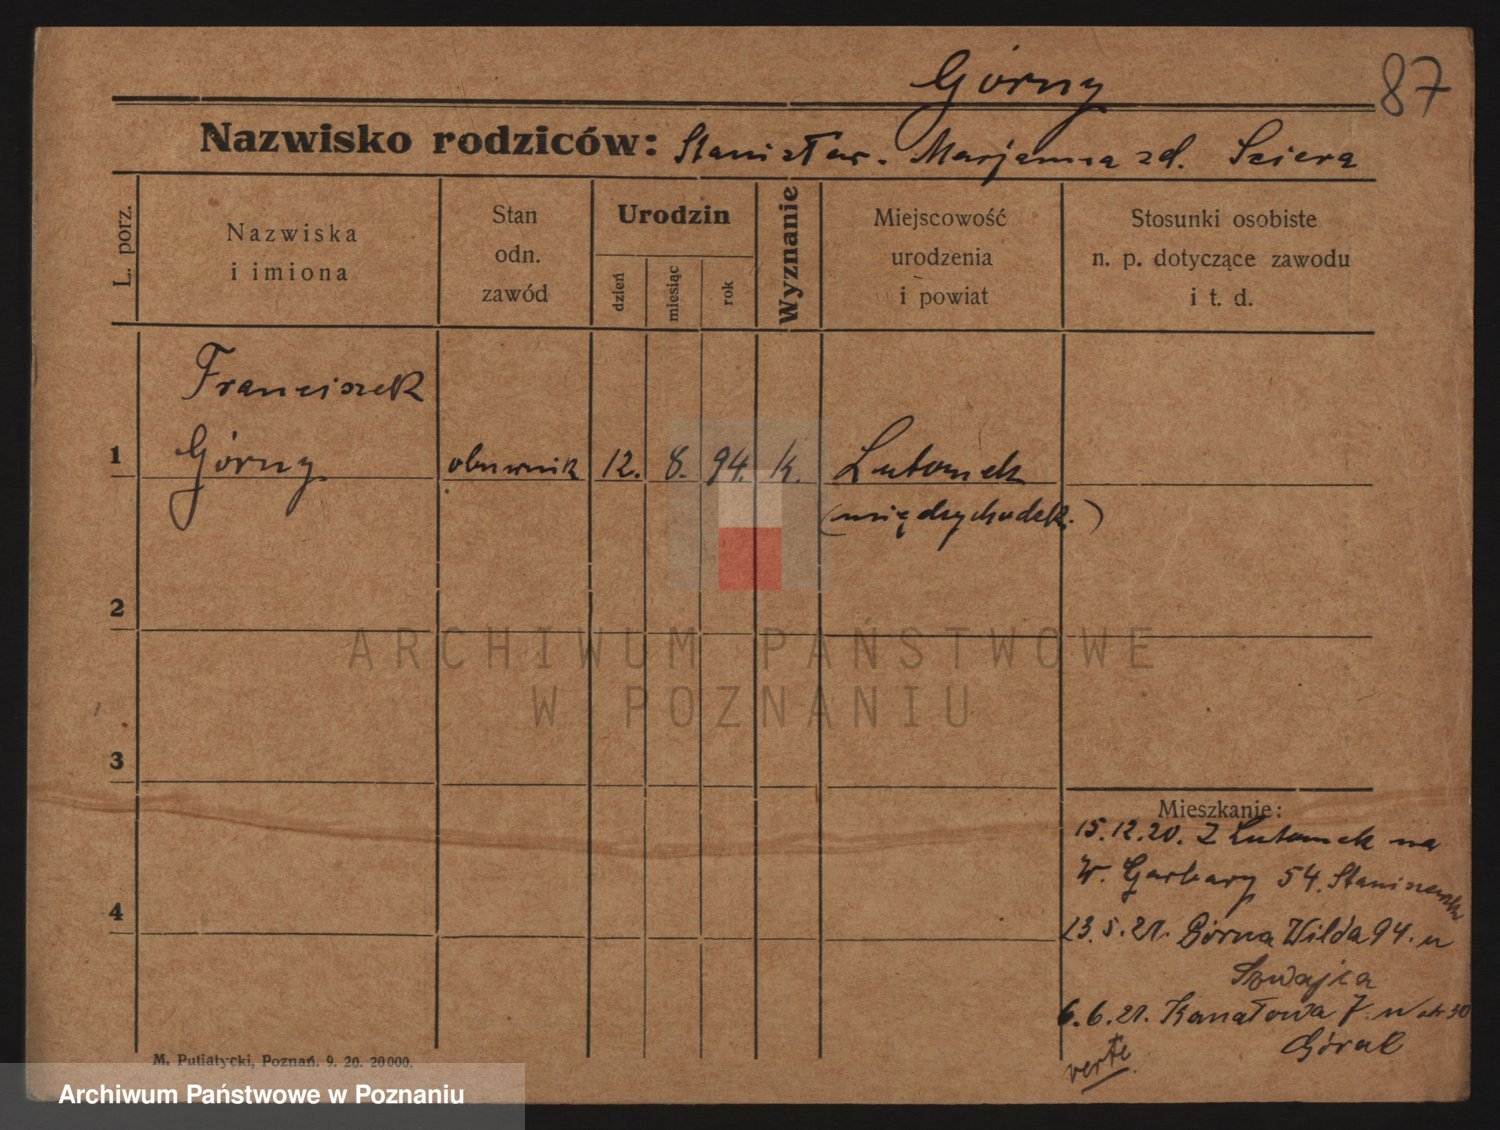 Górny
87
Nazwisko rodziców: Stanisław. Marjanna zd. Sziera
L. porz.
Nazwiska
i imiona
Stan
odn.
zawód
Urodzin
dzień
miesiąc
rok
Wyznanie
Miejscowość
urodzenia
i powiat
Stosunki osobiste
n. p. dotyczące zawodu
i t. d.
Franciszek
1 Górny obuwnik 12. 8. 94. k. Lutomek
(międzychodzk.)
2
3
4
Mieszkanie:
15.12.20. Z Lutomek na
W. Garbary 54. Staniszewski
13.5.21. Górna Wilda 94. u
Szwajca
6.6.21. Kanałowa 7. u
Góral
verte.
M. Putiatycki, Poznań. 9. 20. 20000.
ARCHIWUM PAŃSTWOWE
W POZNANIU
Archiwum Państwowe w Poznaniu